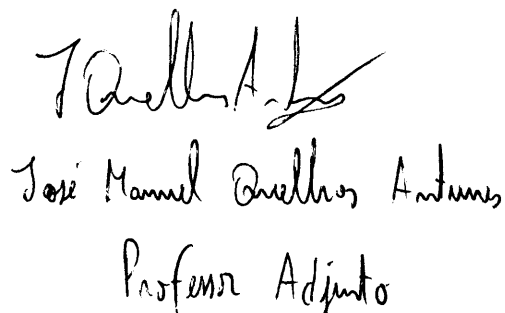 J Quelhas Antunes
José Manuel Quelhas Antunes
Professor Adjunto